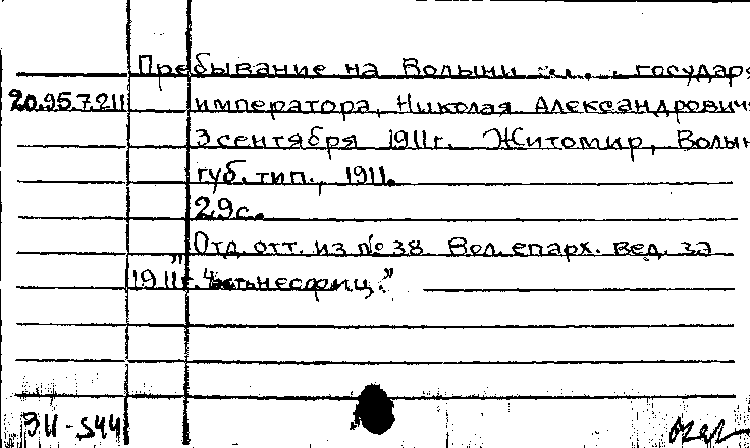 Пребывание на Волыни государя
20.95.7.211 императора, Николая Александрович
3 сентября 1911г. Житомир, Волын
губ. тип., 1911.
29с.
Отд. отт. из № 38 Вол. епарх. вед. за
1911г. "Часть неофиц."